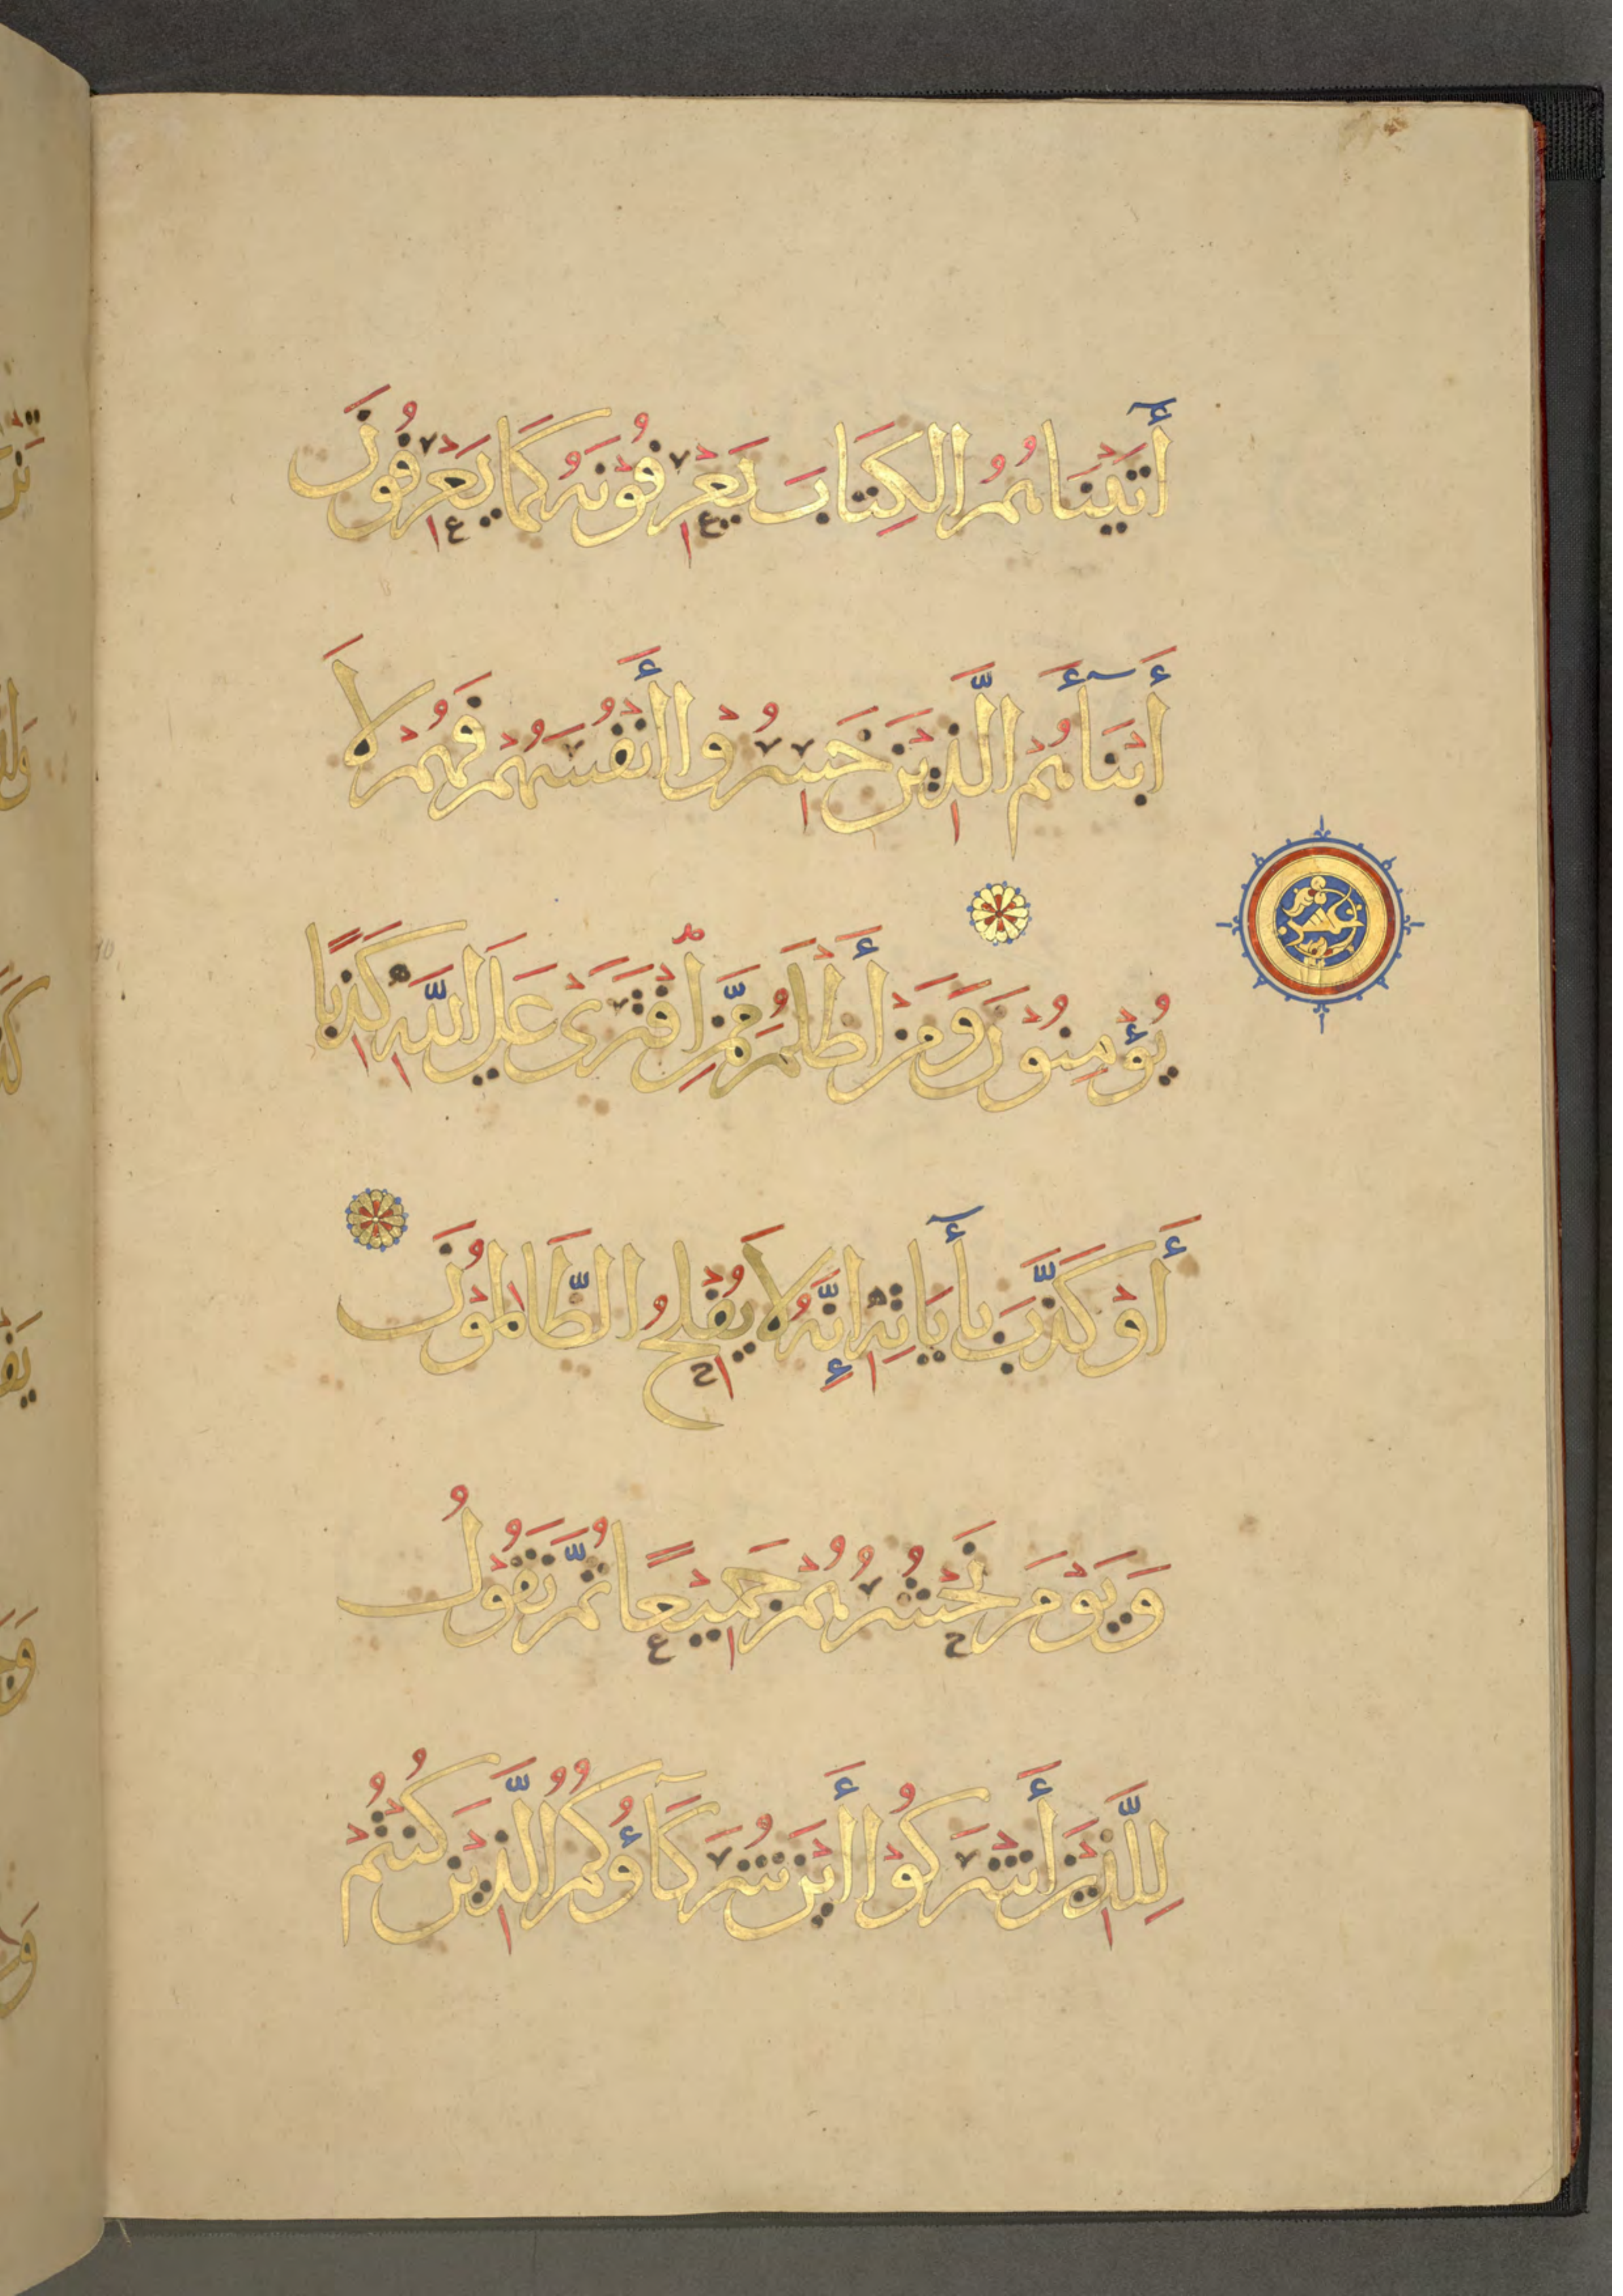 أٓتَيْنَاهُمُ الْكِتَابَ يَعْرِفُوْنَهُ كَمَا يَعْرِفُوْنَ
أَبْنَآءَهُمْ الَّذِيْنَ خَسِرُوْا أَنْفُسَهُمْ فَهُمْ لَا
يُؤْمِنُوْنَ وَمَنْ أَظْلَمُ مِمَّنِ افْتَرَىْ عَلَى اللّٰهِ كَذِبًا
أَوْ كَذَّبَ بِأٓيَاتِهِ إِنَّهُ لَا يُفْلِحُ الظَّالِمُوْنَ
وَيَوْمَ نَحْشُرُهُمْ جَمِيْعًا ثُمَّ نَقُوْلُ
لِلَّذِيْنَ أَشْرَكُوْا أَيْنَ شُرَكَآؤُكُمُ الَّذِيْنَ كُنْتُمْ